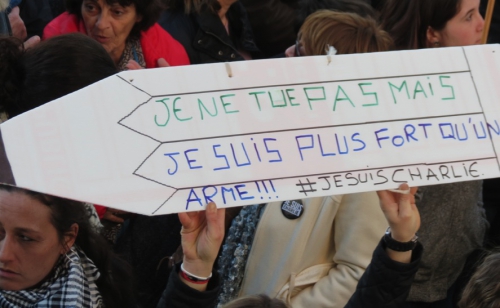 JE NE TUE PAS MAIS
JE SUIS PLUS FORT QU'UN
ARME!!! #JESUISCHARLIE.